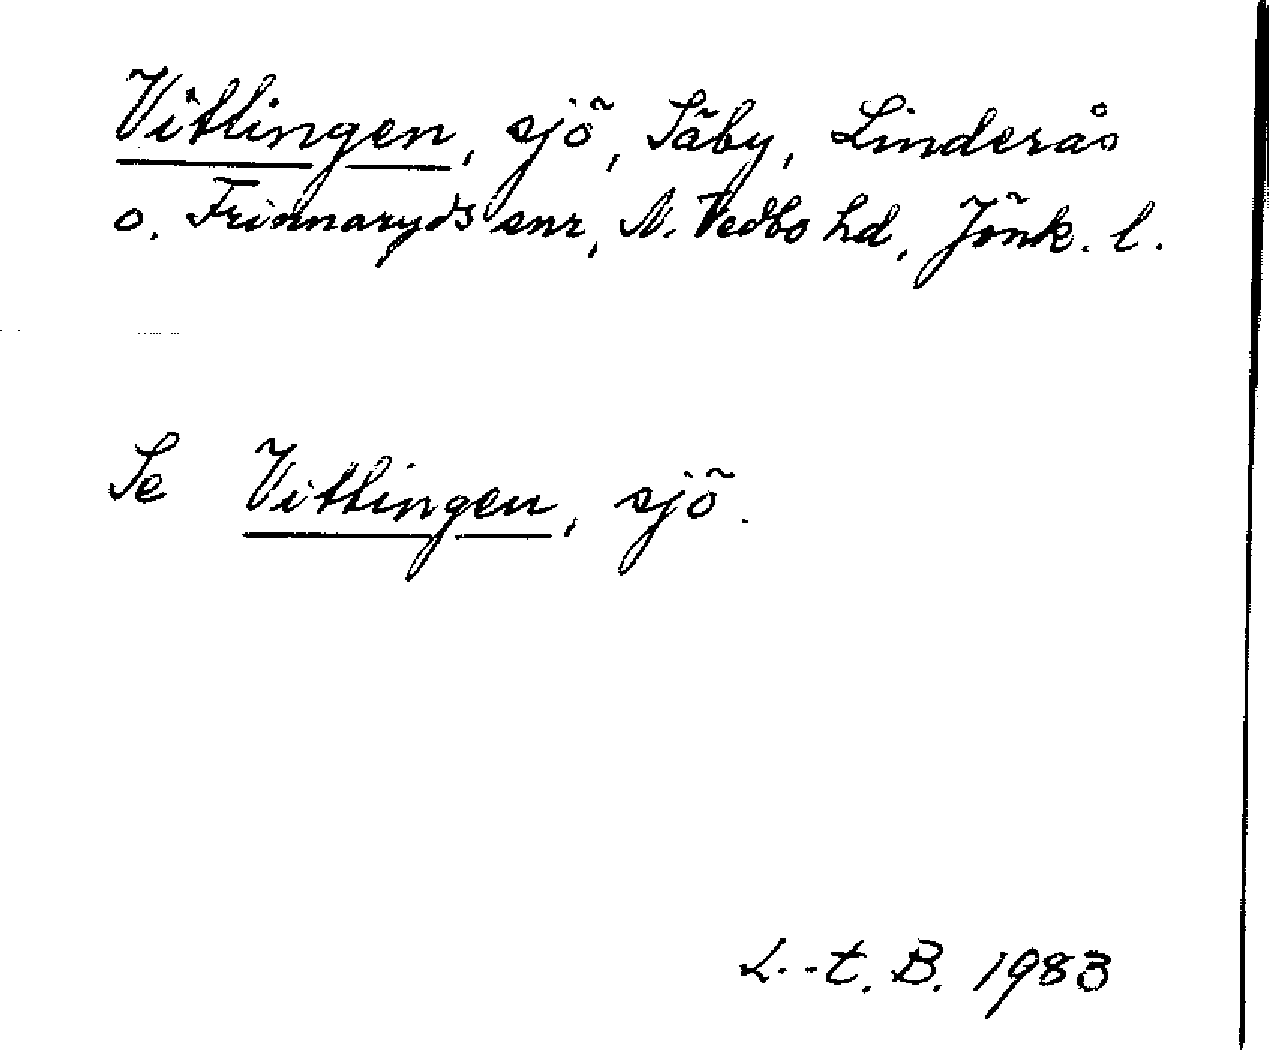 Vittlingen, sjö, Säby, Linderås
o. Frinnaryds snr, N. Vedbo hd, Jönk. l.
Se Vittlingen, sjö.
L.-t. B. 1983